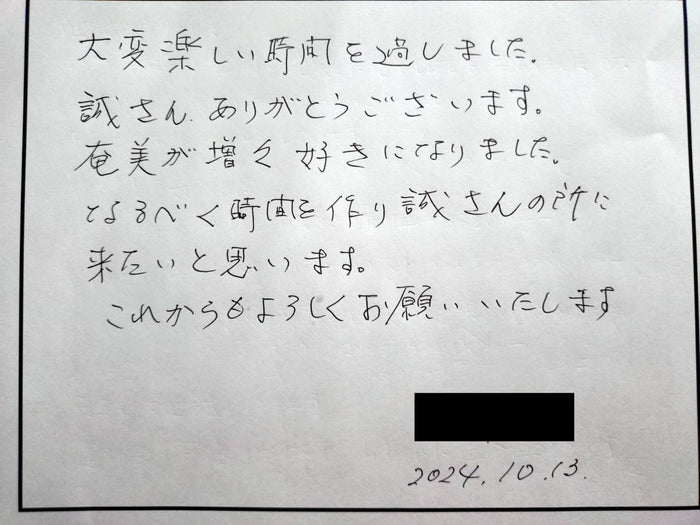 大変楽しい時間を過しました.
誠さん.ありがとうございます。
奄美が増々好きになりました。
なるべく時間を作り誠さんの所に
来たいと思います。
これからもよろしくお願いいたします
2024.10.13.